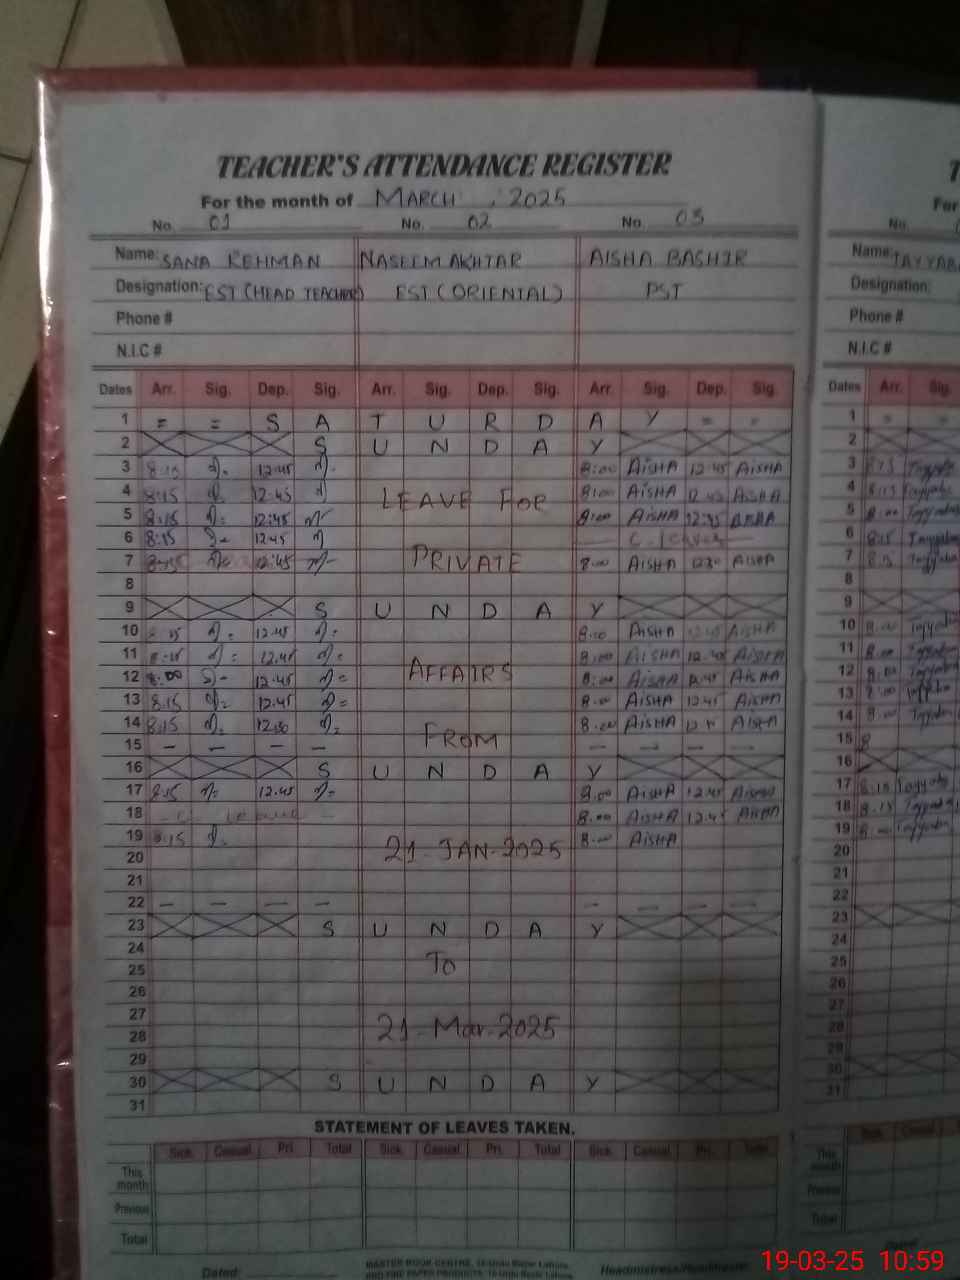 TEACHER'S ATTENDANCE REGISTER
For the month of MARCH, 2025
No. 01 No. 02 No. 03
Name: SANA REHMAN NASEEM AKHTAR AISHA BASHIR Name: TAYYAB
Designation: EST (HEAD TEACHER) EST (ORIENTAL) PST Designation:
Phone # Phone #
N.I.C # N.I.C #
Dates Arr. Sig. Dep. Sig. Arr. Sig. Dep. Sig. Arr. Sig. Dep. Sig. Dates Arr. Sig.
1 = = S A T U R D A Y = = 1
2 S U N D A Y 2
3 8:15 12:45 8:00 AISHA 12:45 AISHA 3 8:15 Tayyaba
4 8:15 12:45 LEAVE FOR 8:00 AISHA 12:45 AISHA 4 8:15 Tayyaba
5 8:15 12:45 8:00 AISHA 12:45 AISHA 5 8:00 Tayyaba
6 8:15 12:45 C. leave 6 8:15 Tayyaba
7 12:45 PRIVATE 8:00 AISHA AISHA 7 8:15 Tayyaba
8 8
9 S U N D A Y 9
10 12:45 8:00 AISHA 12:45 AISHA 10 8:00 Tayyaba
11 12:45 8:00 AISHA 12:45 AISHA 11 8:00 Tayyaba
12 8:00 12:45 AFFAIRS 8:00 AISHA 12:45 AISHA 12 8:00 Tayyaba
13 8:15 12:45 8:00 AISHA 12:45 AISHA 13 8:00 Tayyaba
14 8:15 8:00 AISHA AISHA 14 8:00 Tayyaba
15 — — — — FROM — — — — 15 8
16 S U N D A Y 16
17 8:15 12:45 8:00 AISHA 12:45 AISHA 17 8:15 Tayyaba
18 C. leave 8:00 AISHA 12:45 AISHA 18 8:15 Tayyaba
19 8:15 21-JAN-2025 8:00 AISHA 19 8:00 Tayyaba
20 20
21 21
22 — — — — — — — — 22
23 S U N D A Y 23
24 24
25 TO 25
26 26
27 27
28 21-Mar-2025 28
29 29
30 S U N D A Y 30
31 31
STATEMENT OF LEAVES TAKEN.
Sick Casual Pri. Total Sick Casual Pri. Total Sick Casual Pri. Total Sick Casual
This month This month
Previous Previous
Total Total
Dated: Headmistress/Headmaster
19-03-25 10:59